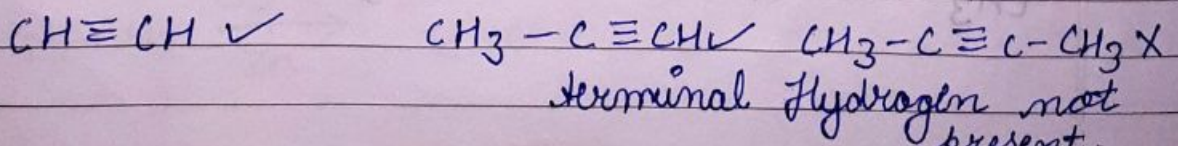 CH≡CH ✓ CH3-C≡CH✓ CH3-C≡C-CH3 X
terminal Hydrogen not
present.